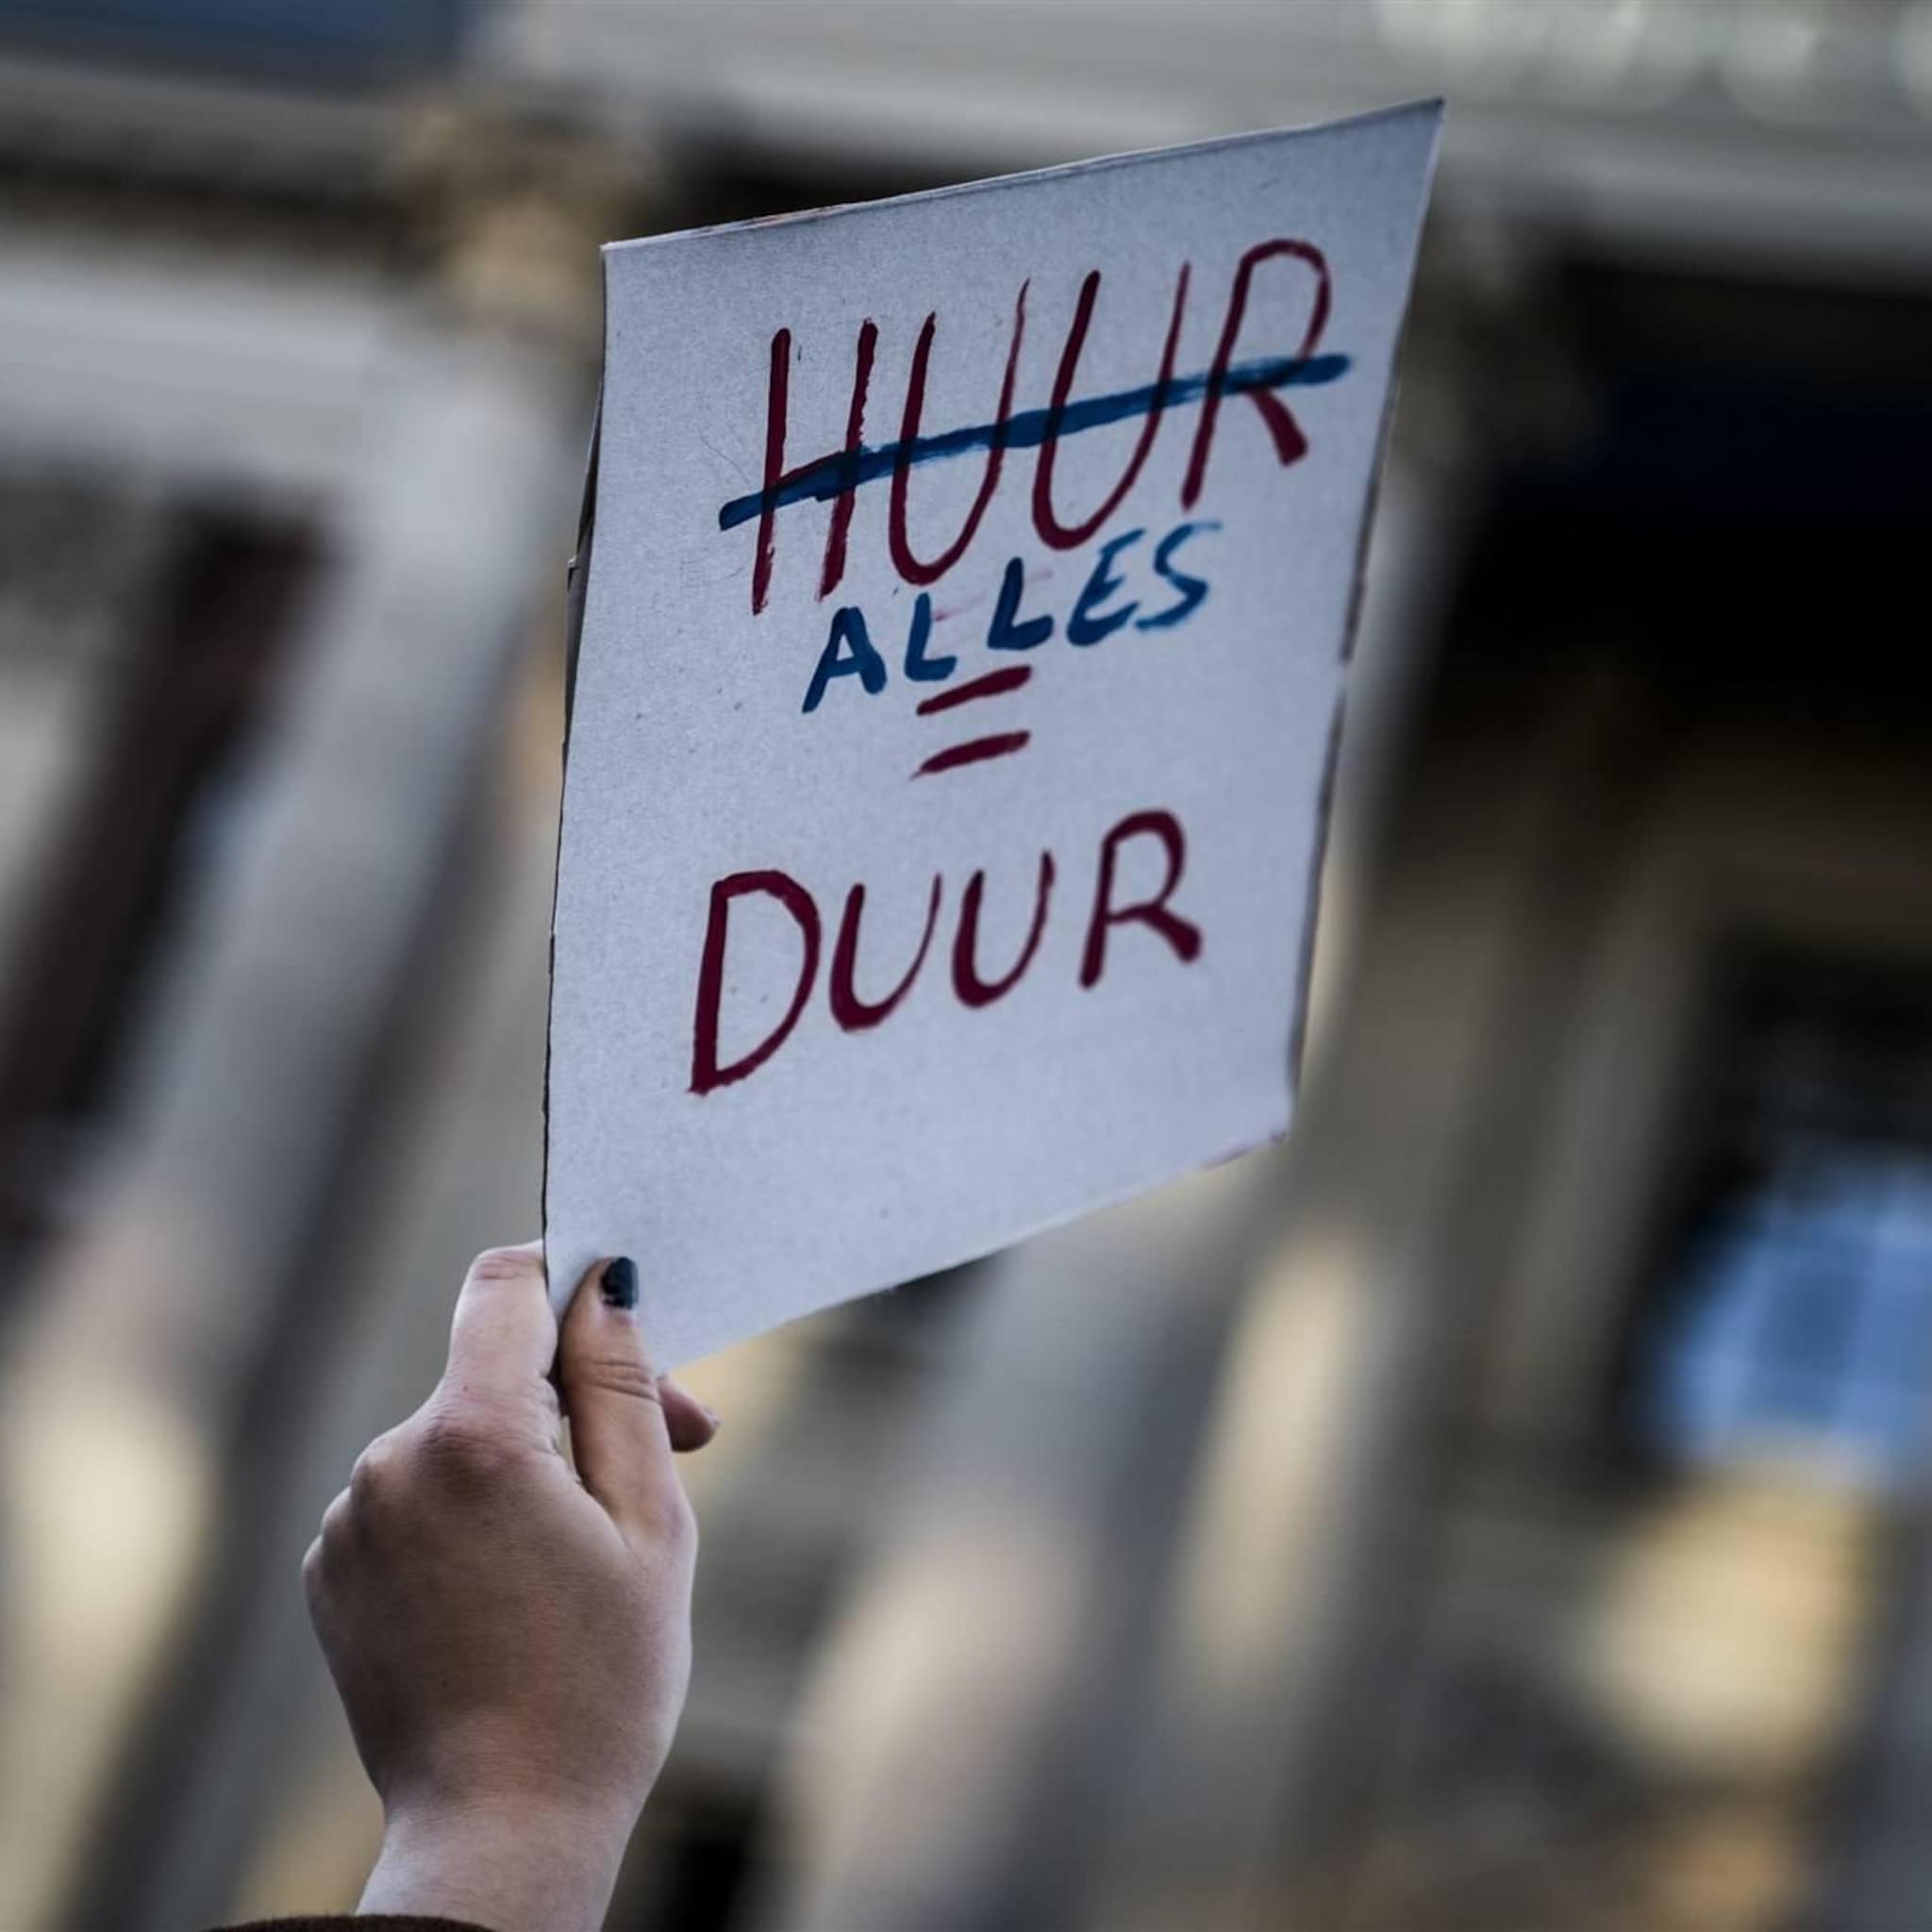 HUUR
ALLES
=
DUUR